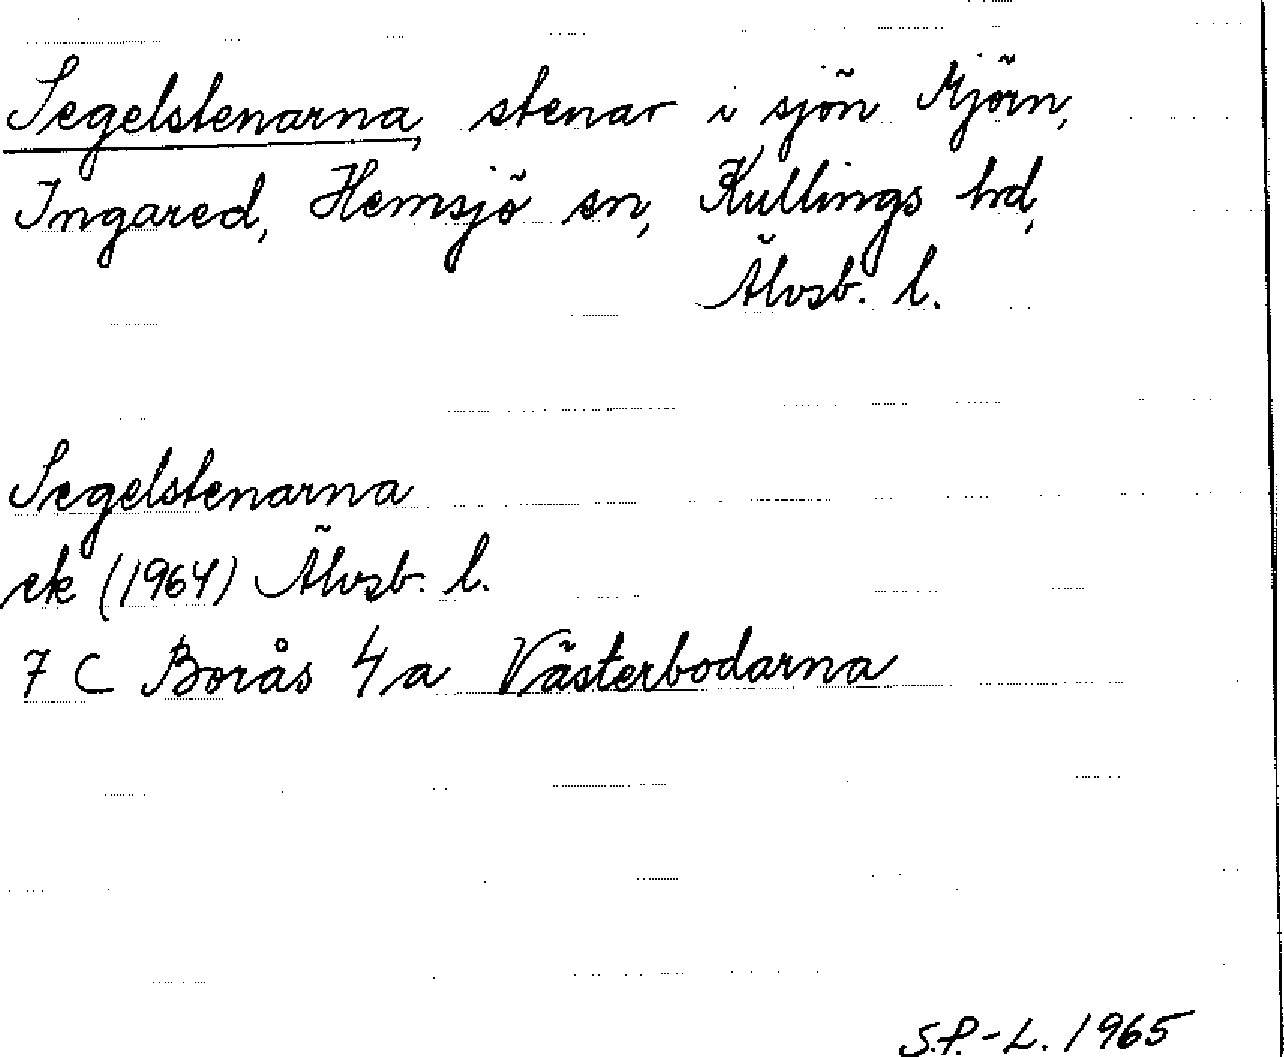 Segelstenarna, stenar i sjön Mjörn,
Ingared, Hemsjö sn, Kullings hd,
Älvsb. l.
Segelstenarna
ek (1964) Älvsb. l.
7 C Borås 4a Västerbodarna
S.P.-L. 1965